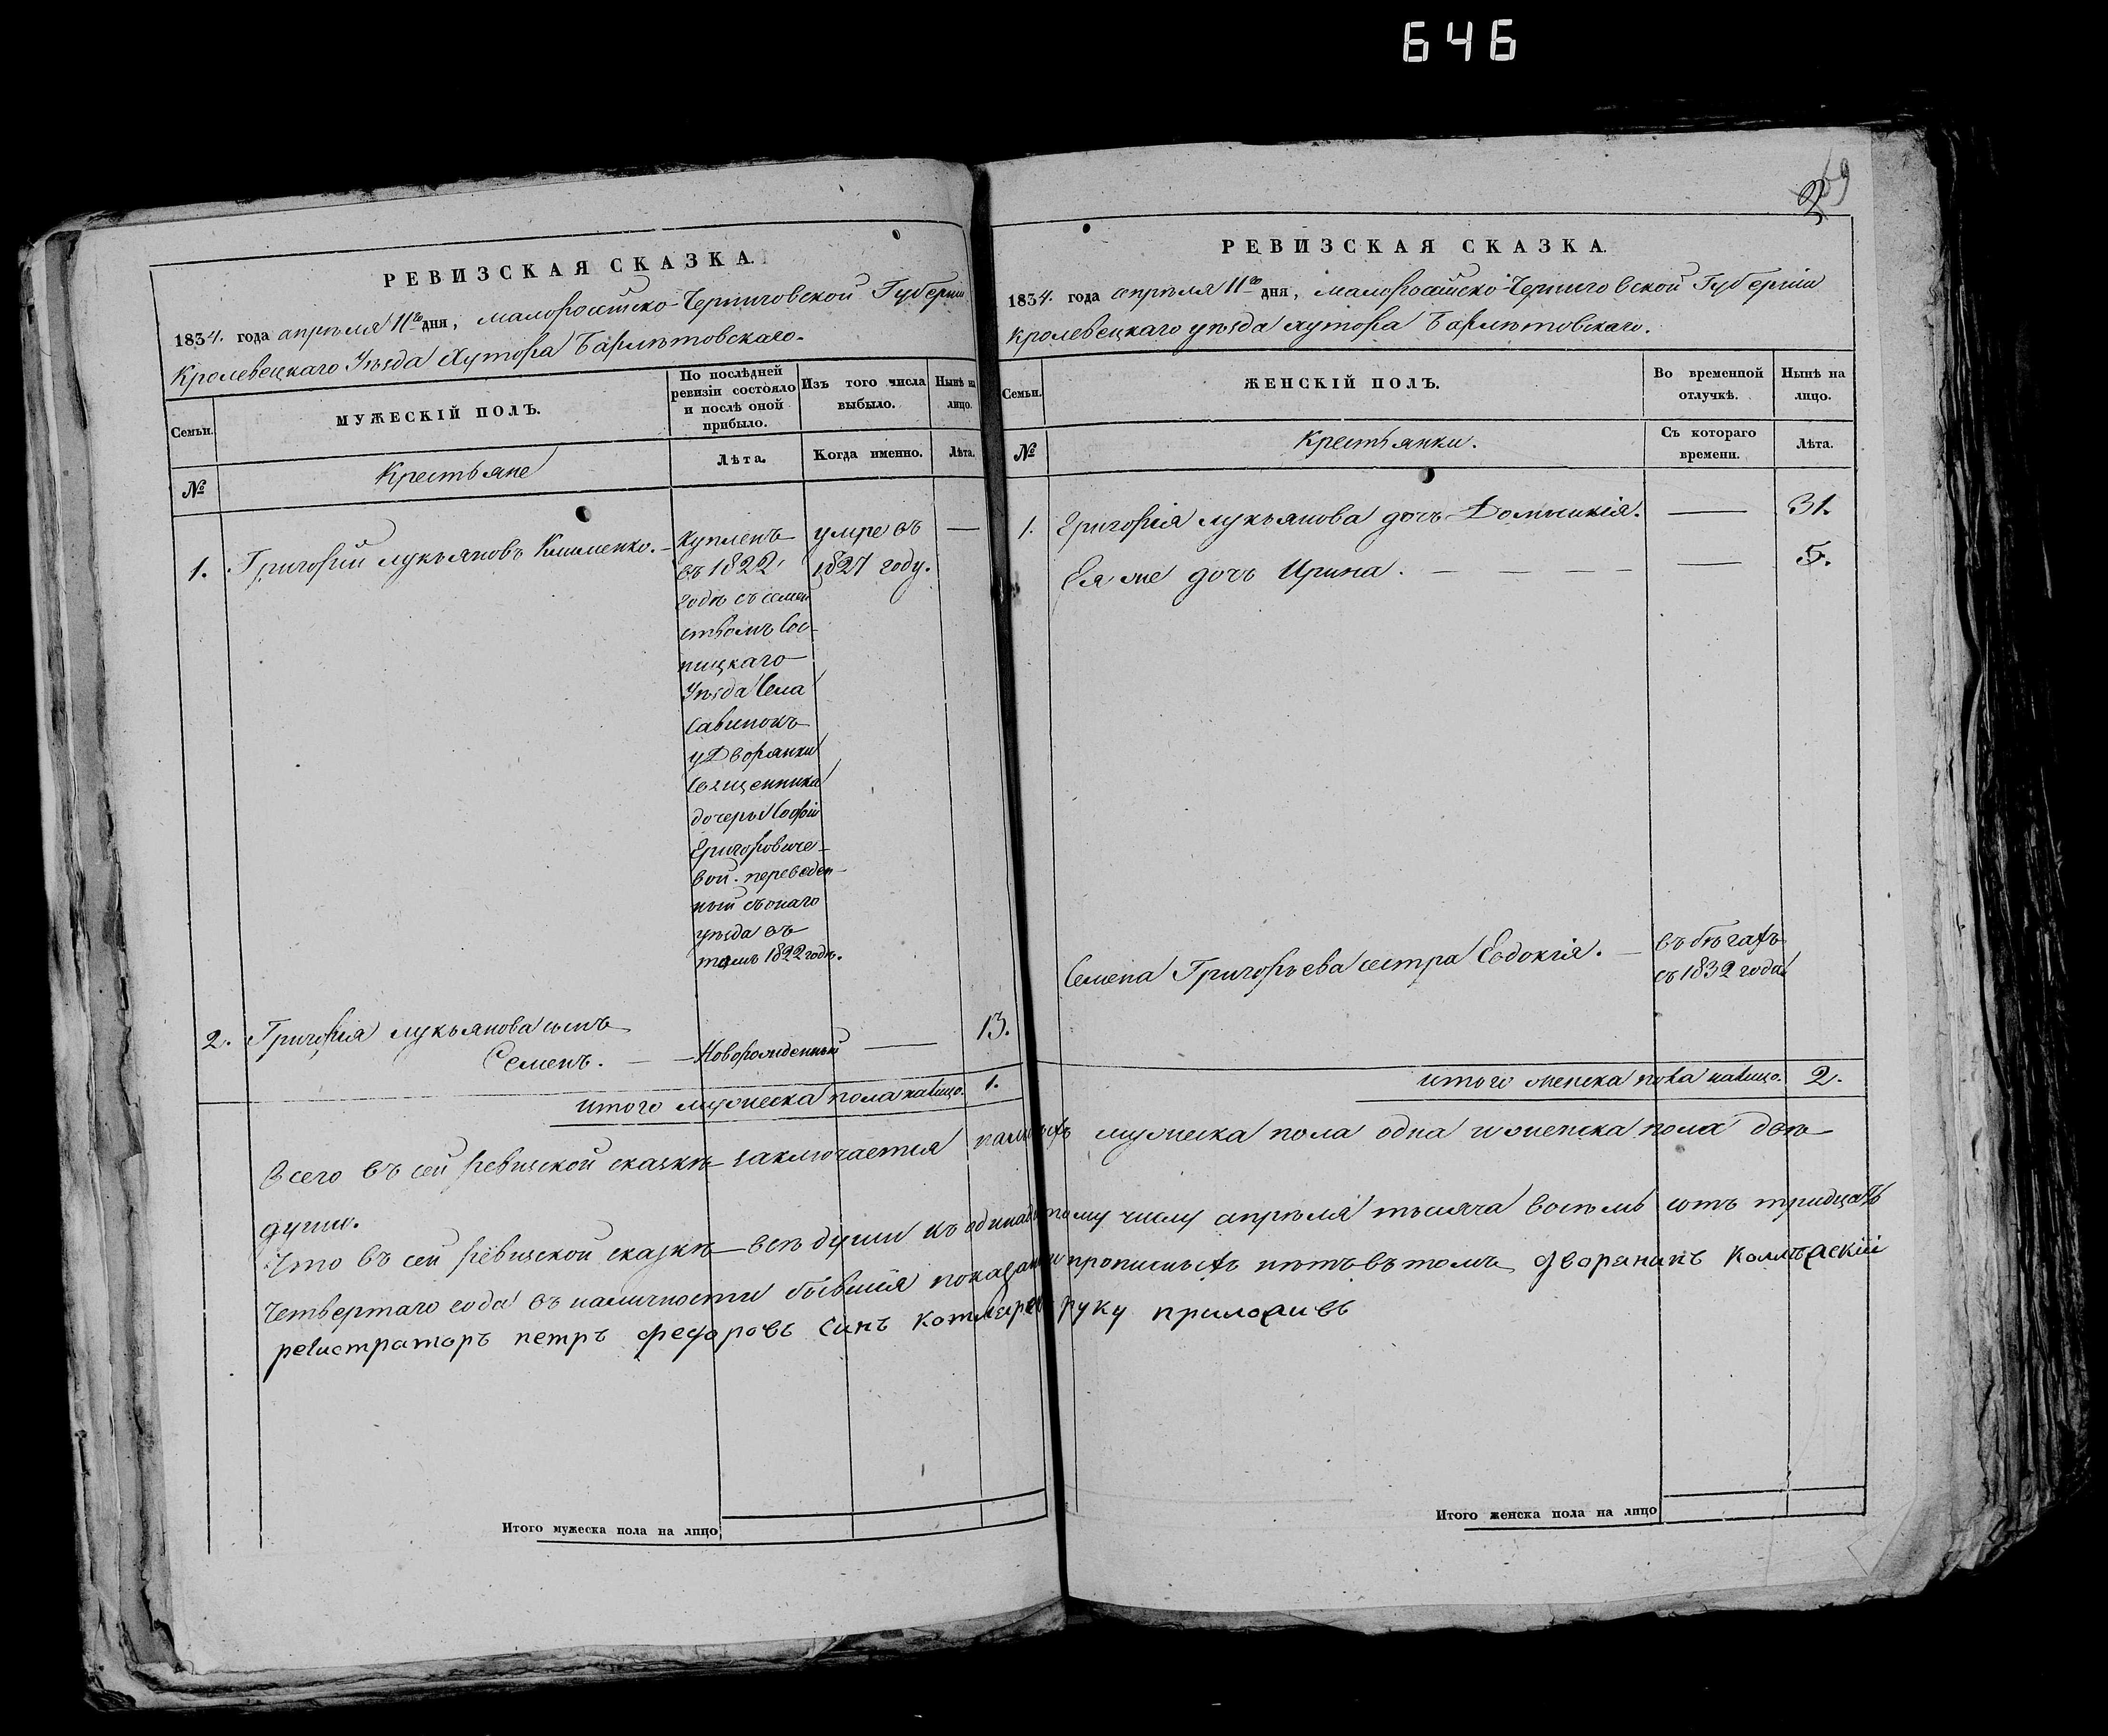 646
269
РЕВИЗСКАЯ СКАЗКА.
1834. года апрѣля 11го дня, малороссійско-Черниговской Губерніи
Кролевецкаго Уѣзда Хутора
Семьи.
МУЖЕСКІЙ ПОЛЪ.
По послѣдней
ревизіи состояло
и послѣ оной
прибыло.
Изъ того числа
выбыло.
Нынѣ на
лицо.
№
Крестьяне
Лѣта.
Когда именно.
Лѣта.
1. Григорій лукьяновъ Клименко. —
купленъ
въ 1822
годѣ съ семей
ствомъ Сос-
ницкаго
Уѣзда Села
Савинокъ
у Дворянки
Священника
дочери Софіи
Григорович-
вой. переведен-
ный съ онаго
уѣзда въ
томъ 1822 годѣ.
умре въ
1827 году.
—
2. Григорія лукьянова сынъ
Семенъ. — — Новорожденный — 13.
итого мужеска пола налицо. 1.
РЕВИЗСКАЯ СКАЗКА.
1834. года апрѣля 11го дня, малороссійско-Черниговской Губерніи
Кролевецкаго уѣзда хутора
Семьи.
ЖЕНСКІЙ ПОЛЪ.
Во временной
отлучкѣ.
Нынѣ на
лицо.
№
Крестьянки.
Съ котораго
времени.
Лѣта.
1. Григорія лукьянова дочь Домникія. — 31.
Ея же дочь Ирина. — — — — — 5.
Семена Григорьева сестра Евдокія. —
въ бѣгахъ
съ 1832 года
итого женска пола налицо. 2.
Всего въ сей ревизской сказкѣ заключается налицѣ мужеска пола одна и женска пола двѣ
души.
Что въ сей ревизской сказкѣ всѣ души къ одинадцатому числу апрѣля тысяча восемь сотъ тридцать
четвертаго года въ наличности бывшія показаны и прописныхъ нѣтъ въ томъ дворянинъ
регистраторъ петръ федоровъ синъ руку приложивъ
Итого мужеска пола на лицо
Итого женска пола на лицо